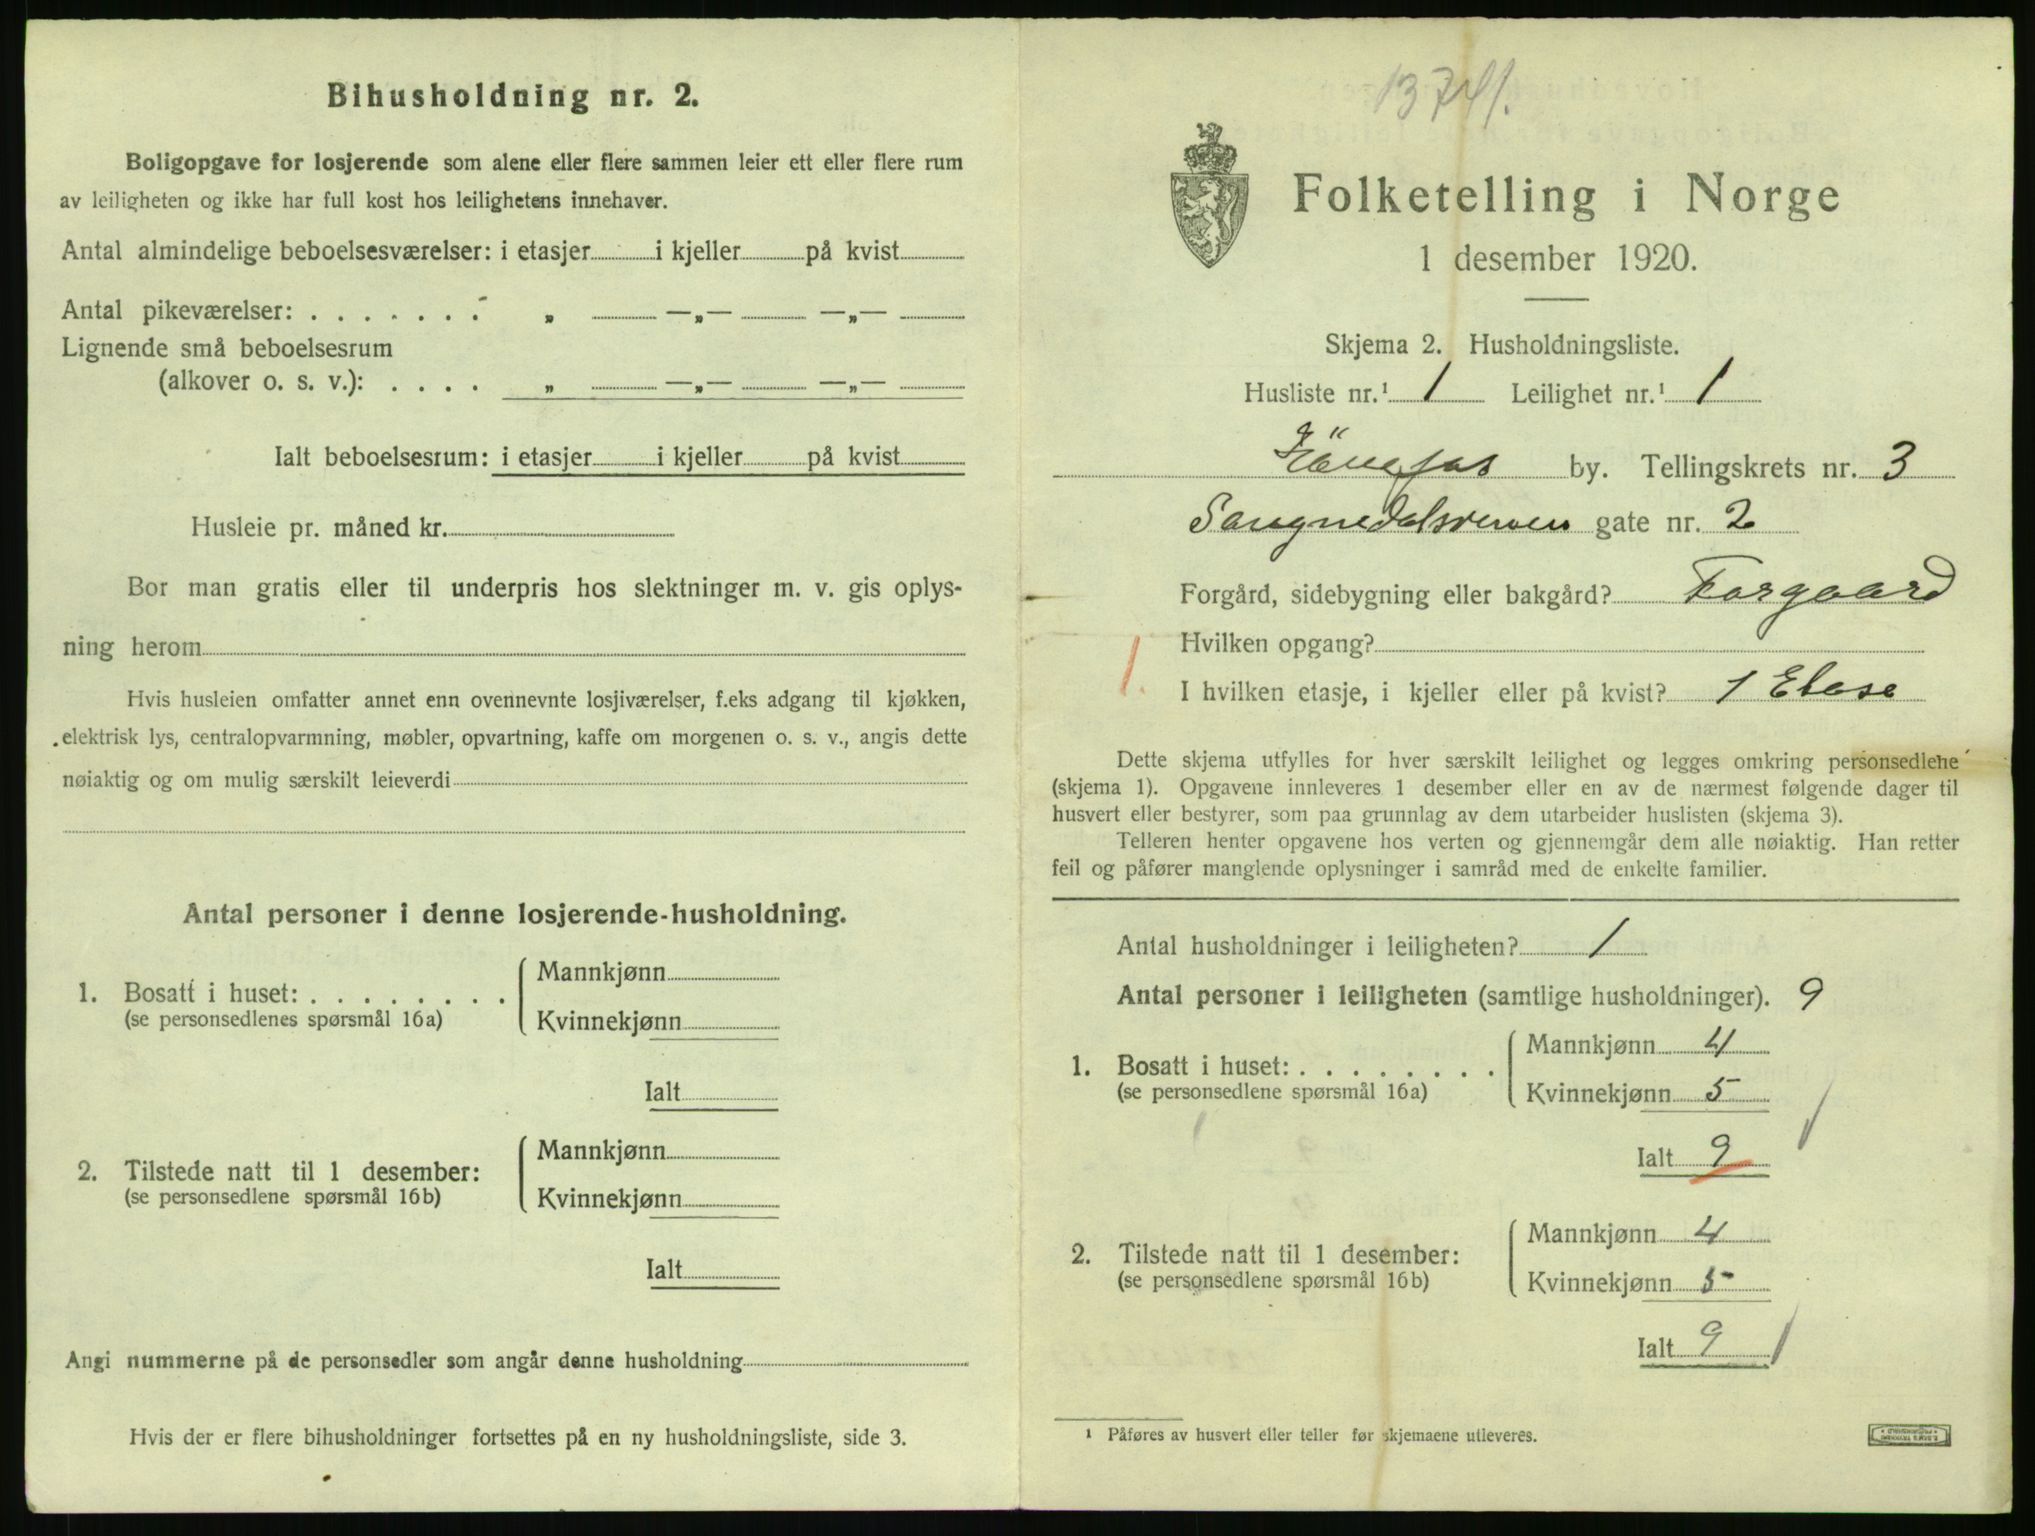 Bihusholdning nr. 2.
Boligopgave for losjerende som alene eller flere sammen leier ett eller flere rum
av leiligheten og ikke har full kost hos leilighetens innehaver.
Antal almindelige beboelsesværelser: i etasjer i kjeller på kvist
Antal pikeværelser: . . . . . . . „ —„— —„—
Lignende små beboelsesrum
(alkover o. s. v.): . . . . „ —„— —„—
Ialt beboelsesrum: i etasjer i kjeller på kvist
Husleie pr. måned kr.
Bor man gratis eller til underpris hos slektninger m. v. gis oplys-
ning herom
Hvis husleien omfatter annet enn ovennevnte losjiværelser, f.eks adgang til kjøkken,
elektrisk lys, centralopvarmning, møbler, opvartning, kaffe om morgenen o. s. v., angis dette
nøiaktig og om mulig særskilt leieverdi
Antal personer i denne losjerende-husholdning.
1. Bosatt i huset: . . . . . . . .
(se personsedlenes spørsmål 16a)
Mannkjønn
Kvinnekjønn
Ialt
2. Tilstede natt til 1 desember:
(se personsedlene spørsmål 16b)
Mannkjønn
Kvinnekjønn
Ialt
Angi nummerne på de personsedler som angår denne husholdning
Hvis der er flere bihusholdninger fortsettes på en ny husholdningsliste, side 3.
Folketelling i Norge
1 desember 1920.
Skjema 2. Husholdningsliste.
Husliste nr.¹ 1 Leilighet nr.¹ 1
by. Tellingskrets nr. 3
gate nr. 2
Forgård, sidebygning eller bakgård? Forgaard
Hvilken opgang?
1.
I hvilken etasje, i kjeller eller på kvist? 1 Etase
Dette skjema utfylles for hver særskilt leilighet og legges omkring personsedlene
(skjema 1). Opgavene innleveres 1 desember eller en av de nærmest følgende dager til
husvert eller bestyrer, som paa grunnlag av dem utarbeider huslisten (skjema 3).
Telleren henter opgavene hos verten og gjennemgår dem alle nøiaktig. Han retter
feil og påfører manglende oplysninger i samråd med de enkelte familier.
Antal husholdninger i leiligheten? 1
Antal personer i leiligheten (samtlige husholdninger). 9
1. Bosatt i huset: . . . . . . . .
(se personsedlene spørsmål 16a)
Mannkjønn 4
Kvinnekjønn 5
Ialt 9
2. Tilstede natt til 1 desember:
(se personsedlene spørsmål 16b)
Mannkjønn 4
Kvinnekjønn 5
Ialt 9
¹ Påføres av husvert eller teller før skjemaene utleveres.